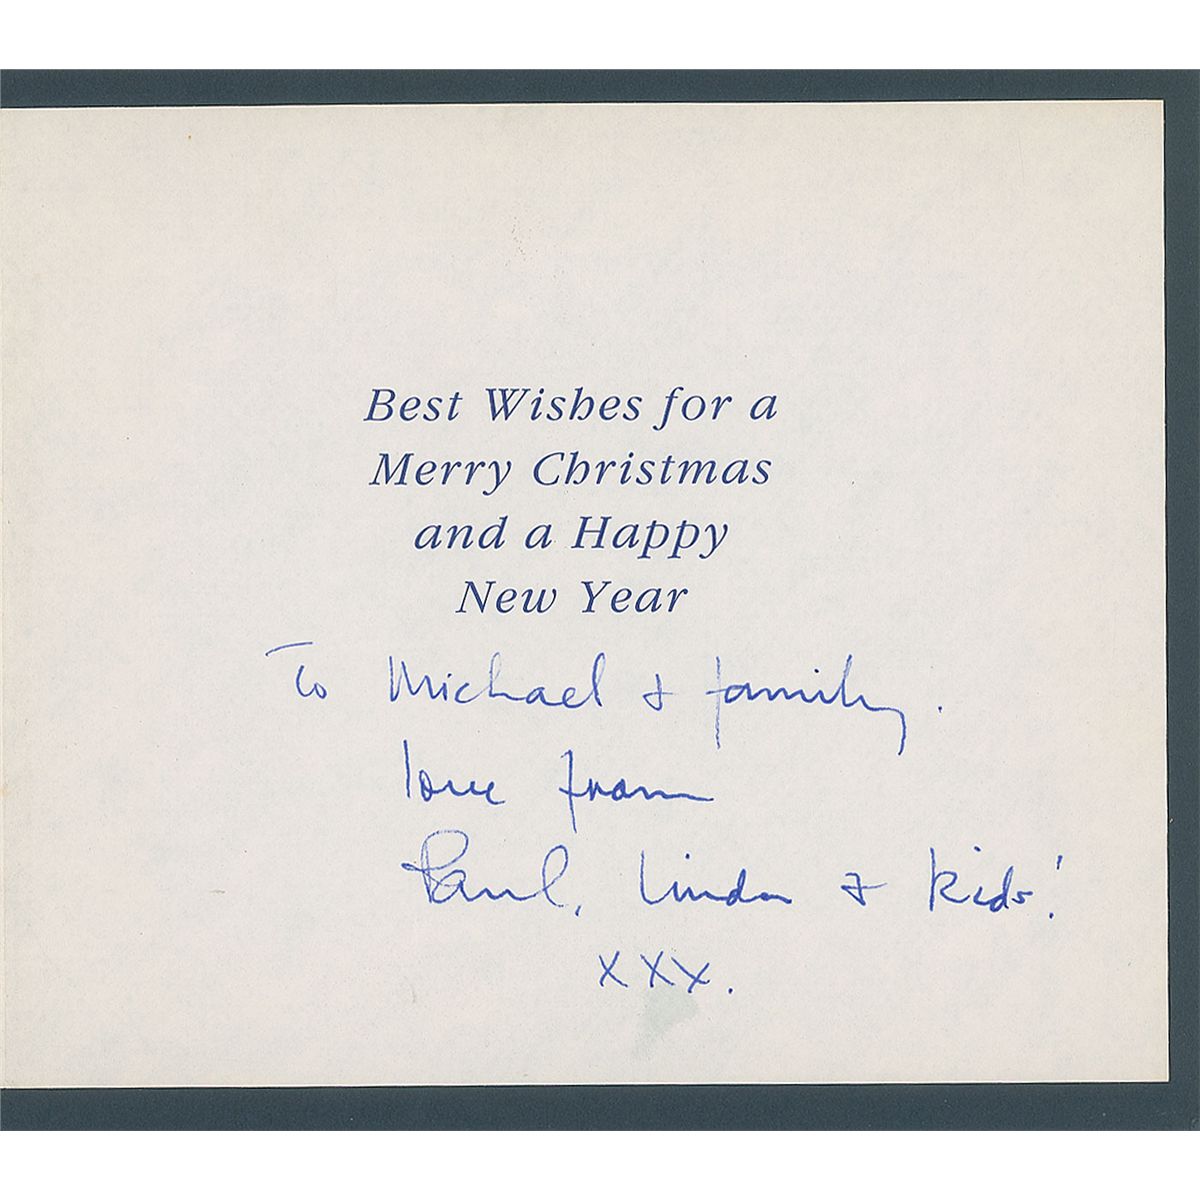 Best Wishes for a
Merry Christmas
and a Happy
New Year
To Michael & family.
love from
Paul, Linda & kids!
xxx.